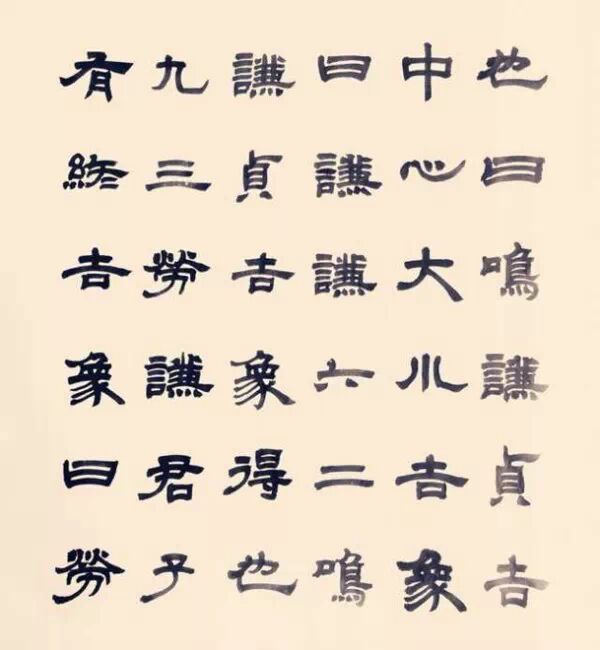 也曰鳴謙貞吉
中心大小吉象
曰謙謙六二鳴
謙貞吉象得也
九三勞謙君子
有終吉象曰勞